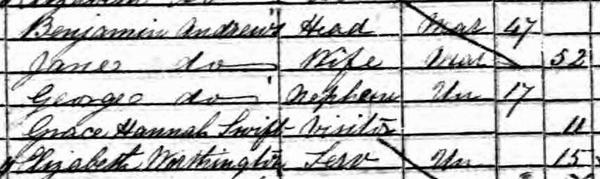 Benjamin Andrews Head Mar 47
Jane do Wife Mar 52
George do Nephew Un 17
Grace Hannah Swift Visitor 11
Elizabeth Worthington Serv Un 15